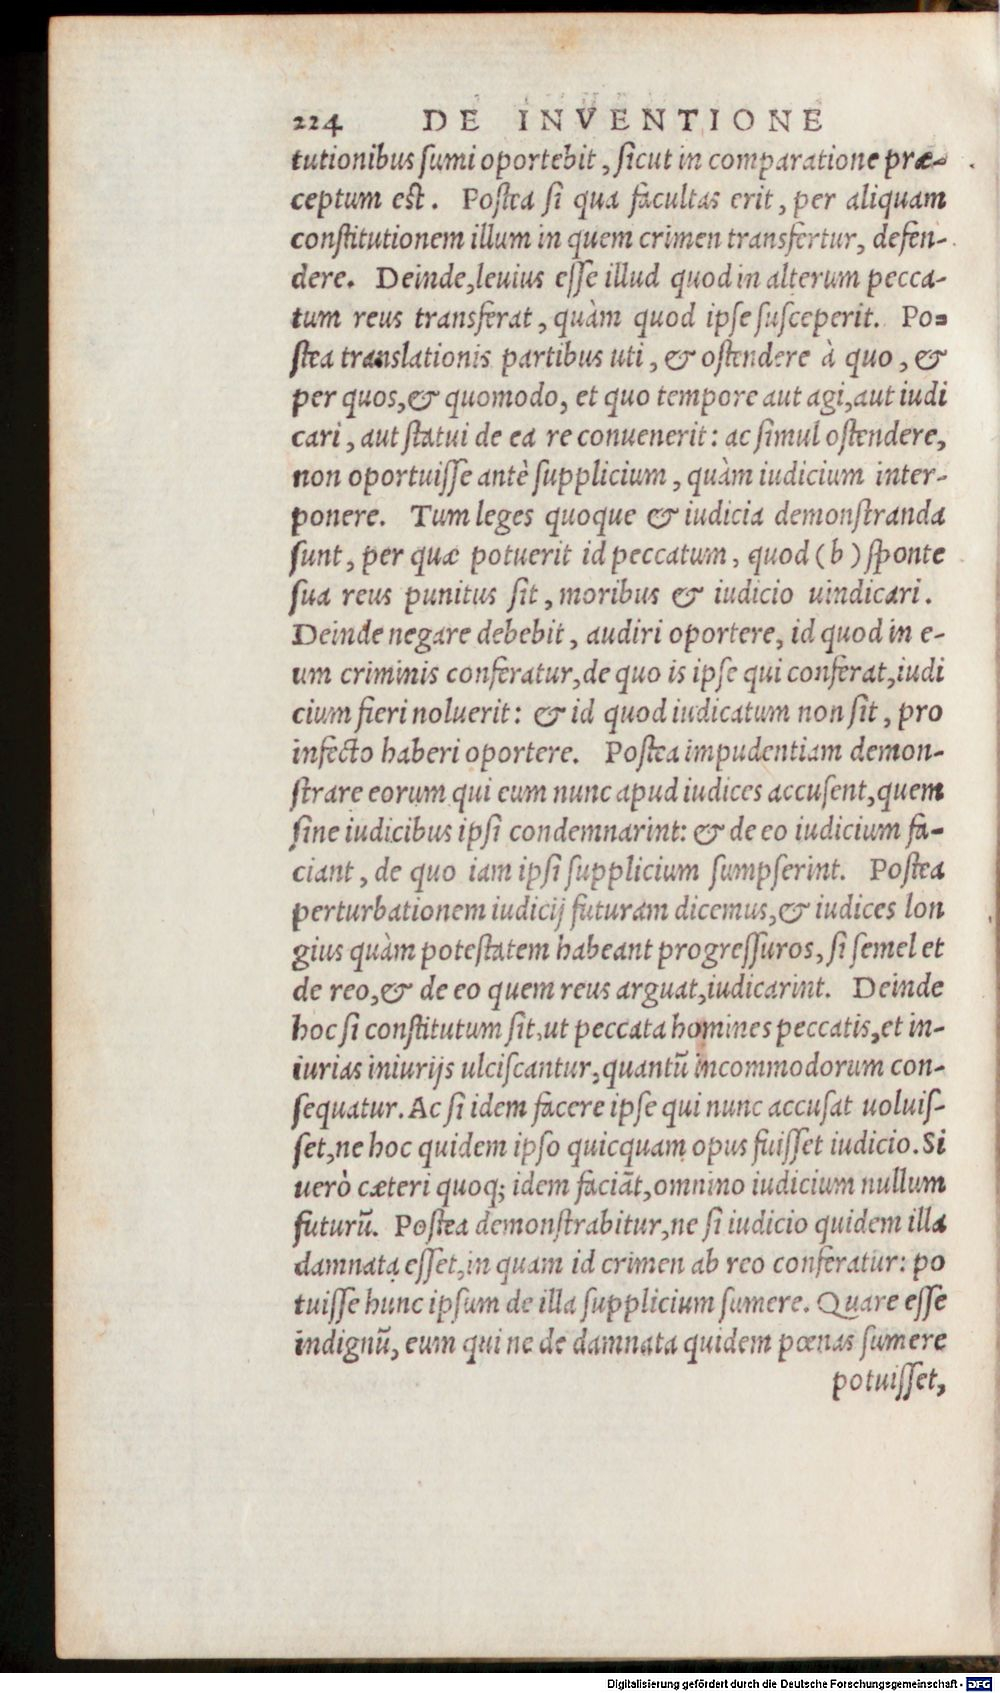 224 DE INVENTIONE
tutionibus sumi oportebit, sicut in comparatione præ-
ceptum est. Postea si qua facultas erit, per aliquam
constitutionem illum in quem crimen transfertur, defen-
dere. Deinde, leuius esse illud quod in alterum pecca-
tum reus transferat, quàm quod ipse susceperit. Po-
stea translationis partibus uti, & ostendere à quo, &
per quos, & quomodo, et quo tempore aut agi, aut iudi
cari, aut statui de ea re conuenerit: ac simul ostendere,
non oportuisse antè supplicium, quàm iudicium inter-
ponere. Tum leges quoque & iudicia demonstranda
sunt, per quæ potuerit id peccatum, quod (b) sponte
sua reus punitus sit, moribus & iudicio uindicari.
Deinde negare debebit, audiri oportere, id quod in e-
um criminis conferatur, de quo is ipse qui conferat, iudi
cium fieri noluerit: & id quod iudicatum non sit, pro
infecto haberi oportere. Postea impudentiam demon-
strare eorum qui eum nunc apud iudices accusent, quem
sine iudicibus ipsi condemnarint: & de eo iudicium fa-
ciant, de quo iam ipsi supplicium sumpserint. Postea
perturbationem iudicij futuram dicemus, & iudices lon
gius quàm potestatem habeant progressuros, si semel et
de reo, & de eo quem reus arguat, iudicarint. Deinde
hoc si constitutum sit, ut peccata homines peccatis, et in-
iurias iniurijs ulciscantur, quantũ incommodorum con-
sequatur. Ac si idem facere ipse qui nunc accusat uoluis-
set, ne hoc quidem ipso quicquam opus fuisset iudicio. Si
uerò cæteri quoq; idem faciãt, omnino iudicium nullum
futurũ. Postea demonstrabitur, ne si iudicio quidem illa
damnata esset, in quam id crimen ab reo conferatur: po
tuisse hunc ipsum de illa supplicium sumere. Quare esse
indignũ, eum qui ne de damnata quidem pœnas sumere
potuisset,
Digitalisierung gefördert durch die Deutsche Forschungsgemeinschaft - DFG